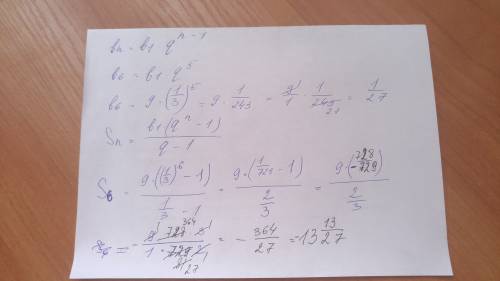 bn = b1 q^n-1
b6 = b1 q^5
b6 = 9 · (1/3)^5 = 9 · 1/243 = 9/1 · 1/243 27 = 1/27
Sn = b1(q^n - 1)/q - 1
S6 = 9·((1/3)^6 - 1)/1/3 - 1 = 9·(1/729 - 1)/2/3 = 9·(-728/729)/2/3
= - 364/27 = -13 13/27